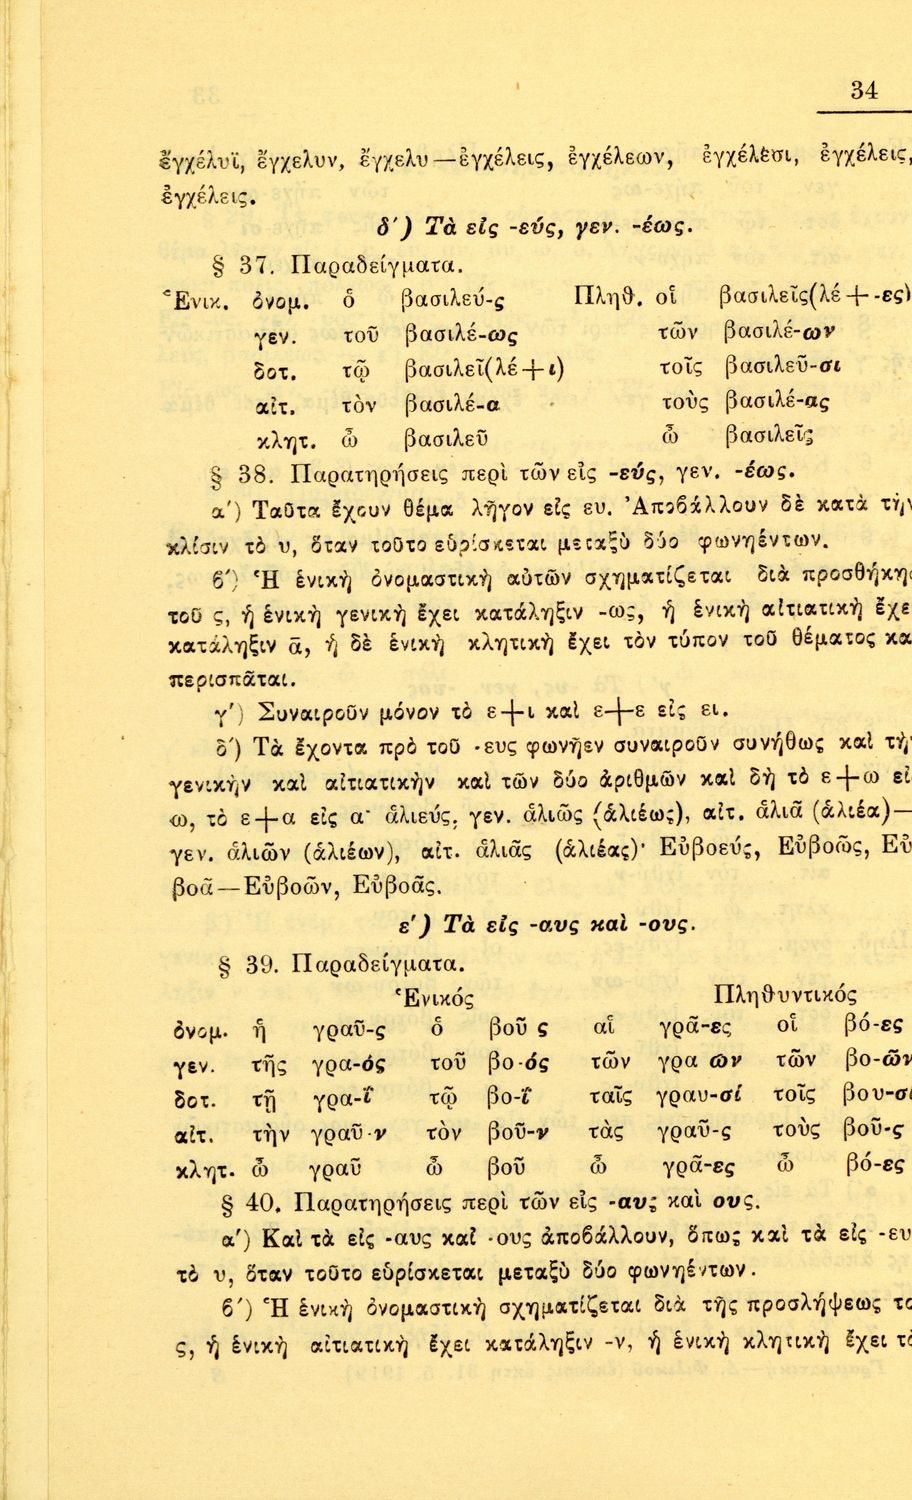 34
ἐγχέλυϊ, ἔγχελυν, ἔγχελυ—ἐγχέλεις, ἐγχέλεων, ἐγχέλεσι, ἐγχέλεις,
ἐγχέλεις.
δ΄) Τὰ εἰς -εύς, γεν. -έως.
§ 37. Παραδείγματα.
Ἑνικ. ὀνομ. ὁ βασιλεύ-ς Πληθ. οἱ βασιλεῖς(λέ+-ες)
γεν. τοῦ βασιλέ-ως τῶν βασιλέ-ων
δοτ. τῷ βασιλεῖ(λέ+ι) τοῖς βασιλεῦ-σι
αἰτ. τὸν βασιλέ-α τοὺς βασιλέ-ας
κλητ. ὦ βασιλεῦ ὦ βασιλεῖς
§ 38. Παρατηρήσεις περὶ τῶν εἰς -εύς, γεν. -έως.
α΄) Ταῦτα ἔχουν θέμα λῆγον εἰς ευ. Ἀποβάλλουν δὲ κατὰ τὴν
κλίσιν τὸ υ, ὅταν τοῦτο εὑρίσκεται μεταξὺ δύο φωνηέντων.
β΄) Ἡ ἑνικὴ ὀνομαστικὴ αὐτῶν σχηματίζεται διὰ προσθήκης
τοῦ ς, ἡ ἑνικὴ γενικὴ ἔχει κατάληξιν -ως, ἡ ἑνικὴ αἰτιατικὴ ἔχε
κατάληξιν ᾱ, ἡ δὲ ἑνικὴ κλητικὴ ἔχει τὸν τύπον τοῦ θέματος κα
περισπᾶται.
γ΄) Συναιροῦν μόνον τὸ ε+ι καὶ ε+ε εἰς ει.
δ΄) Τὰ ἔχοντα πρὸ τοῦ -ευς φωνῆεν συναιροῦν συνήθως καὶ τὴν
γενικὴν καὶ αἰτιατικὴν καὶ τῶν δύο ἀριθμῶν καὶ δὴ τὸ ε+ω εἰ
ω, τὸ ε+α εἰς α· ἁλιεύς, γεν. ἁλιῶς (ἁλιέως), αἰτ. ἁλιᾶ (ἁλιέα)—
γεν. ἁλιῶν (ἁλιέων), αἰτ. ἁλιᾶς (ἁλιέας)· Εὐβοεύς, Εὐβοῶς, Εὐ
βοᾶ—Εὐβοῶν, Εὐβοᾶς.
ε΄) Τὰ εἰς -αυς καὶ -ους.
§ 39. Παραδείγματα.
Ἑνικός Πληθυντικός
ὀνομ. ἡ γραῦ-ς ὁ βοῦ ς αἱ γρᾶ-ες οἱ βό-ες
γεν. τῆς γρα-ός τοῦ βο-ός τῶν γρα ῶν τῶν βο-ῶν
δοτ. τῇ γρα-ΐ τῷ βο-ΐ ταῖς γραυ-σί τοῖς βου-σί
αἰτ. τὴν γραῦ-ν τὸν βοῦ-ν τὰς γραῦ-ς τοὺς βοῦ-ς
κλητ. ὦ γραῦ ὦ βοῦ ὦ γρᾶ-ες ὦ βό-ες
§ 40. Παρατηρήσεις περὶ τῶν εἰς -αυς καὶ ους.
α΄) Καὶ τὰ εἰς -αυς καὶ -ους ἀποβάλλουν, ὅπως καὶ τὰ εἰς -ευ
τὸ υ, ὅταν τοῦτο εὑρίσκεται μεταξὺ δύο φωνηέντων.
β΄) Ἡ ἑνικὴ ὀνομαστικὴ σχηματίζεται διὰ τῆς προσλήψεως το
ς, ἡ ἑνικὴ αἰτιατικὴ ἔχει κατάληξιν -ν, ἡ ἑνικὴ κλητικὴ ἔχει τὸ